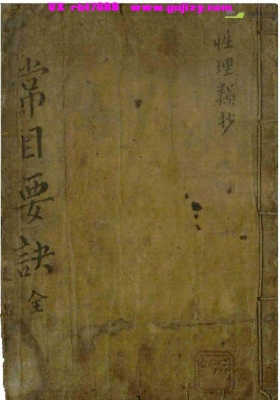 VX rhf7888 www.gujizy.com
性理類抄
常目要訣 全